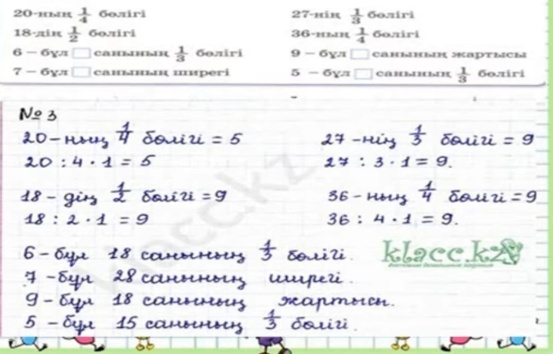 20-ның 1/4 бөлігі 27-нің 1/3 бөлігі
18-дің 1/2 бөлігі 36-ның 1/4 бөлігі
6 – бұл □ санының 1/3 бөлігі 9 – бұл □ санының жартысы
7 – бұл □ санының ширегі 5 – бұл □ санының 1/3 бөлігі
№ 3
20-ның 1/4 бөлігі = 5 27-нің 1/3 бөлігі = 9
20 : 4 · 1 = 5 27 : 3 · 1 = 9.
18-дің 1/2 бөлігі = 9 36-ның 1/4 бөлігі = 9
18 : 2 · 1 = 9 36 : 4 · 1 = 9.
6 - бұл 18 санының 1/3 бөлігі.
klacc.kz
7 - бұл 28 санының ширегі.
9 - бұл 18 санының жартысы.
5 - бұл 15 санының 1/3 бөлігі.